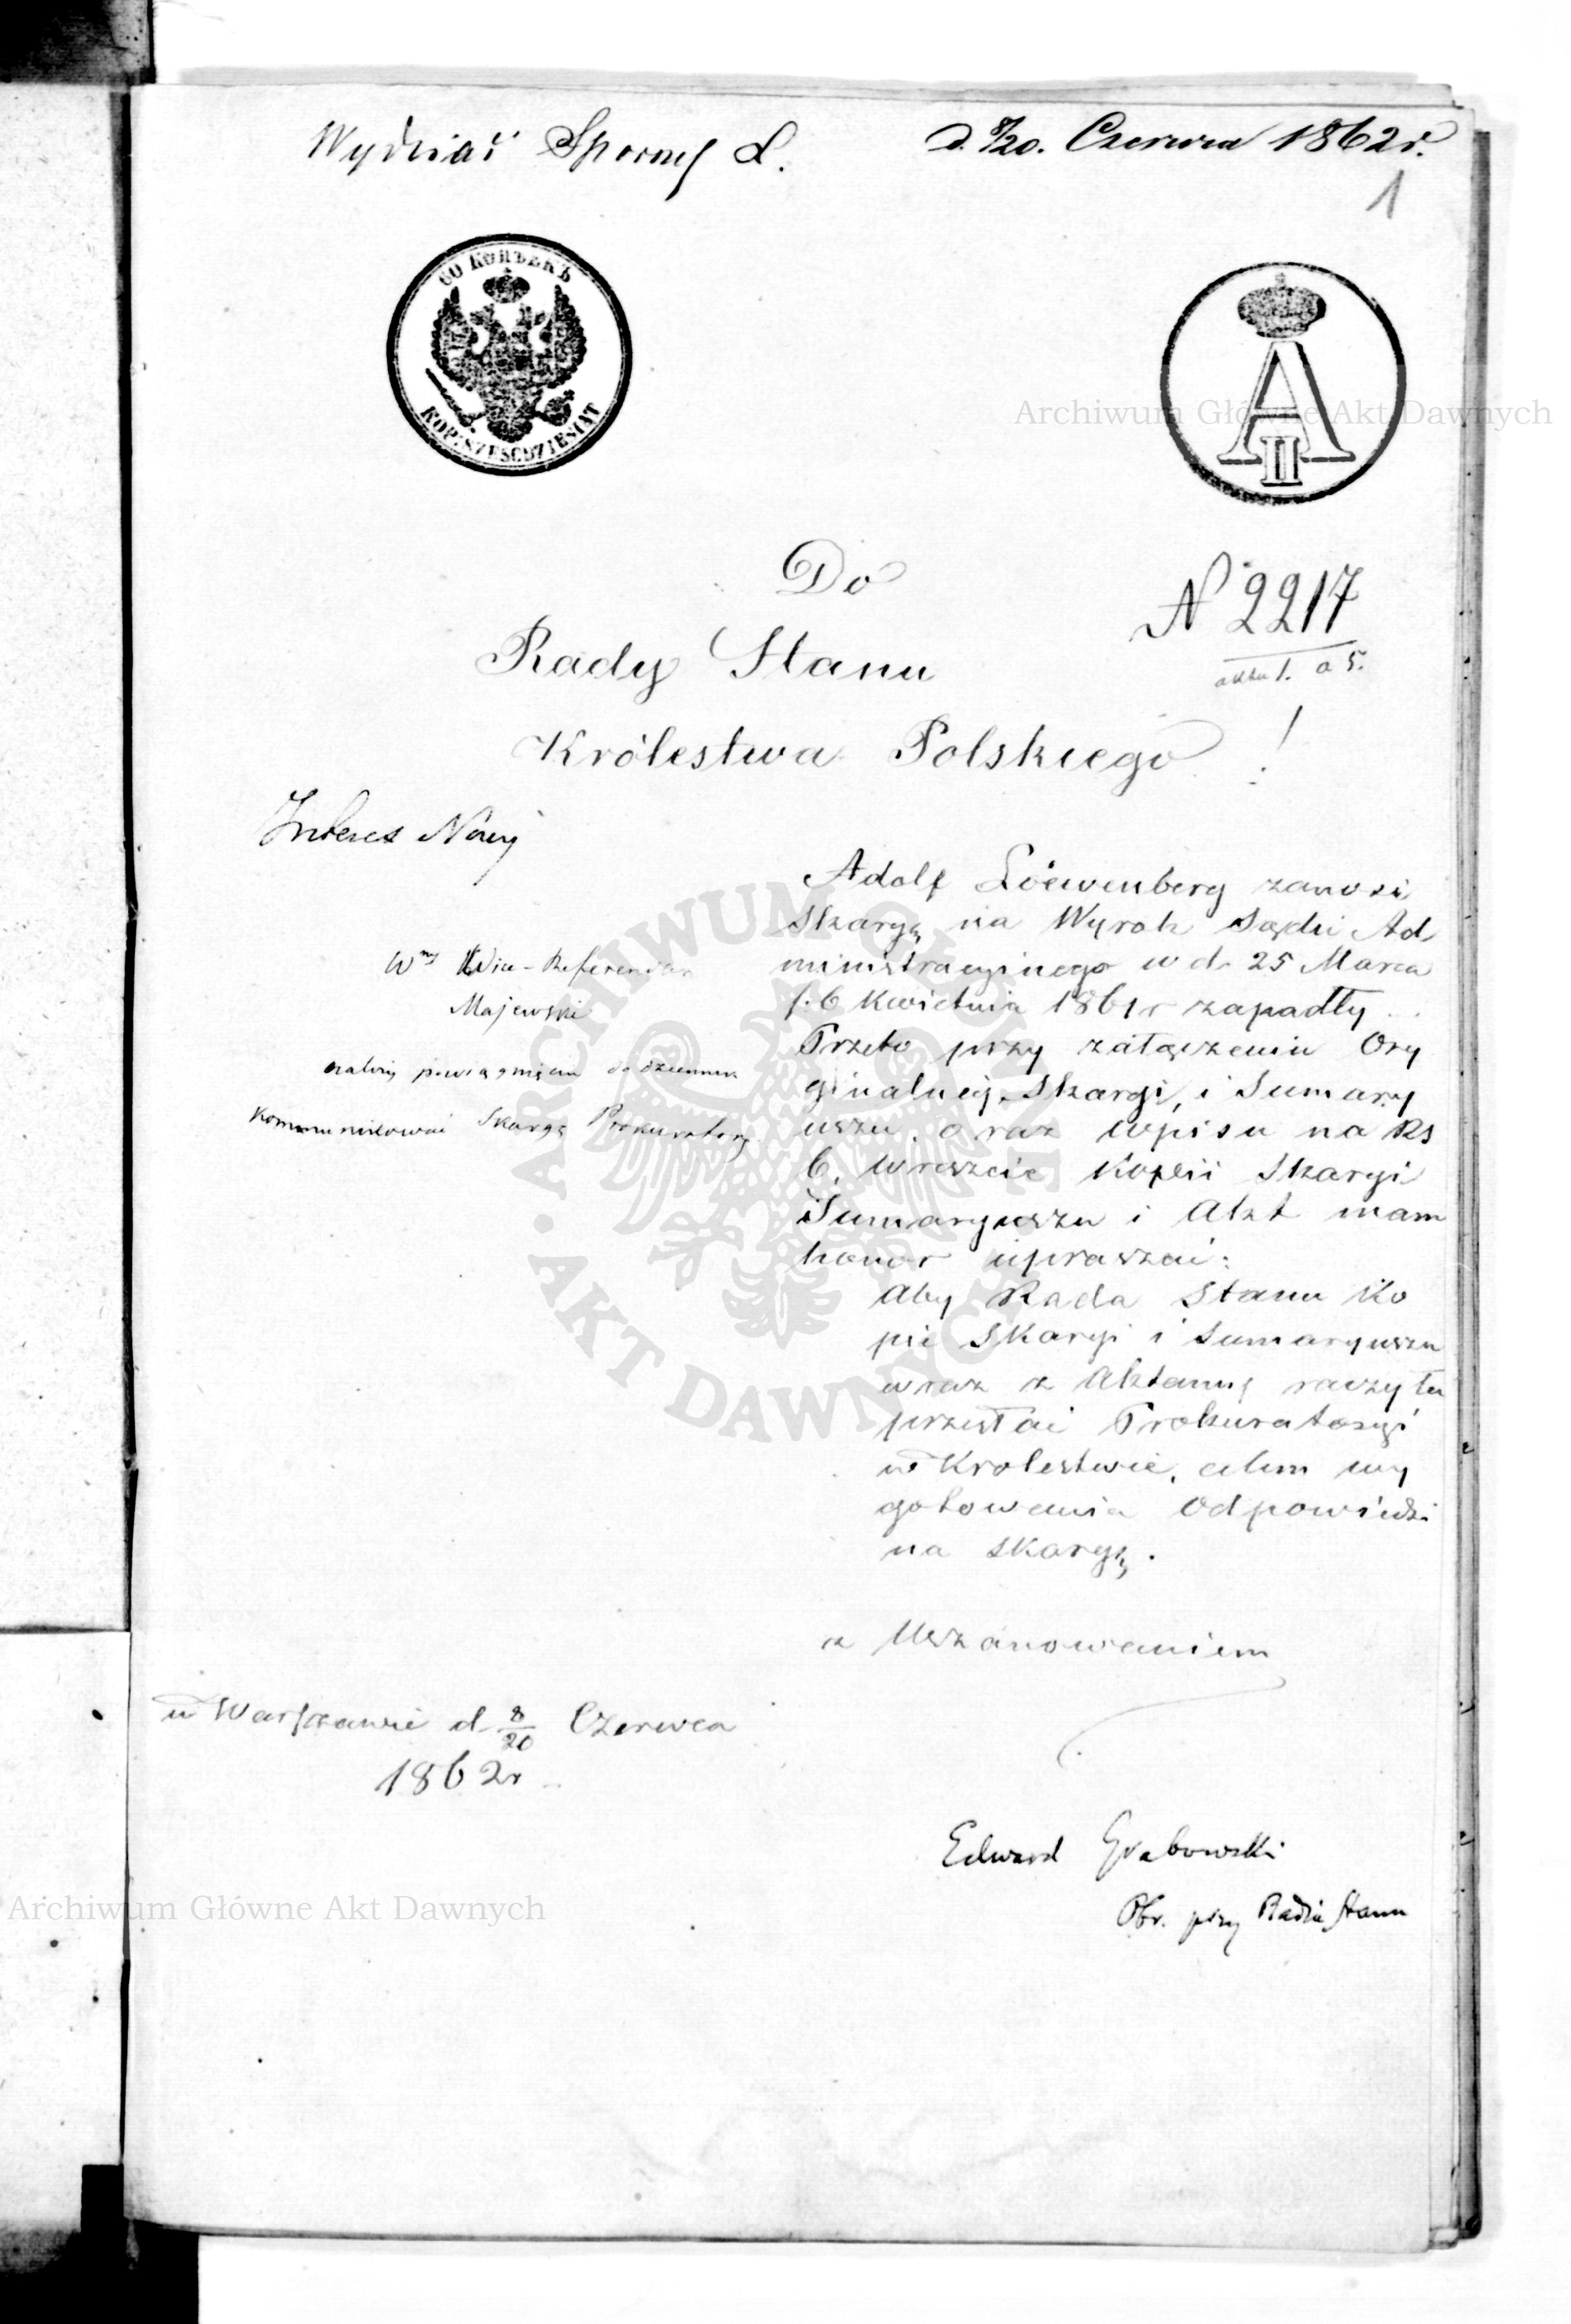 Wydział Sporny L.
d. 8/20. Czerwca 1862 r.
1
60 КОПѢЕКЪ
KOP: SZESĆDZIESIĄT
A
II
Do
N 2217
Rady Stanu
Królestwa Polskiego !
Interes Nowy
Adolf Löewenberg zanosi
skargę na Wyrok Sądu Ad
ministracyjnego w d. 25 Marca
/: 6 Kwietnia 1861 r zapadły
Przeto przy załączeniu Ory
ginalnej Skargi, i Sumary
uszu, oraz wpisu na Rs
6, wreszcie Kopii Skargi
Sumaryuszu i Akt mam
honor upraszać:
Aby Rada Stanu Ko
pie Skargi i Sumaryuszu
wraz z Aktami raczyła
przesłać Prokuratoryi
w Krolestwie, celem wy
gotowania Odpowiedzi
na skargę.
Wny Vice-Referendarz
Majewski
komunikować Skargę Prokuratoryi
z Uszanowaniem
w Warszawie d. 8/20 Czerwca
1862 r
Edward Grabowski
Obr. przy Radzie Stanu
Archiwum Główne Akt Dawnych
ARCHIWUM GŁÓWNE • AKT DAWNYCH •
Archiwum Główne Akt Dawnych